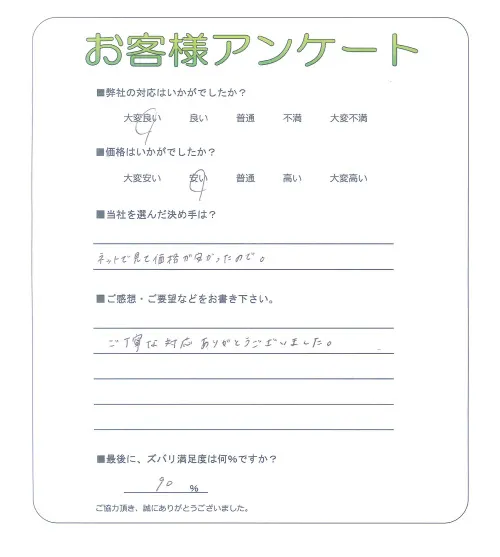 お客様アンケート
■弊社の対応はいかがでしたか？
大変良い 良い 普通 不満 大変不満
■価格はいかがでしたか？
大変安い 安い 普通 高い 大変高い
■当社を選んだ決め手は？
ネットで見て価格が安かったので。
■ご感想・ご要望などをお書き下さい。
ご丁寧な対応ありがとうございました。
■最後に、ズバリ満足度は何%ですか？
90 %
ご協力頂き、誠にありがとうございました。